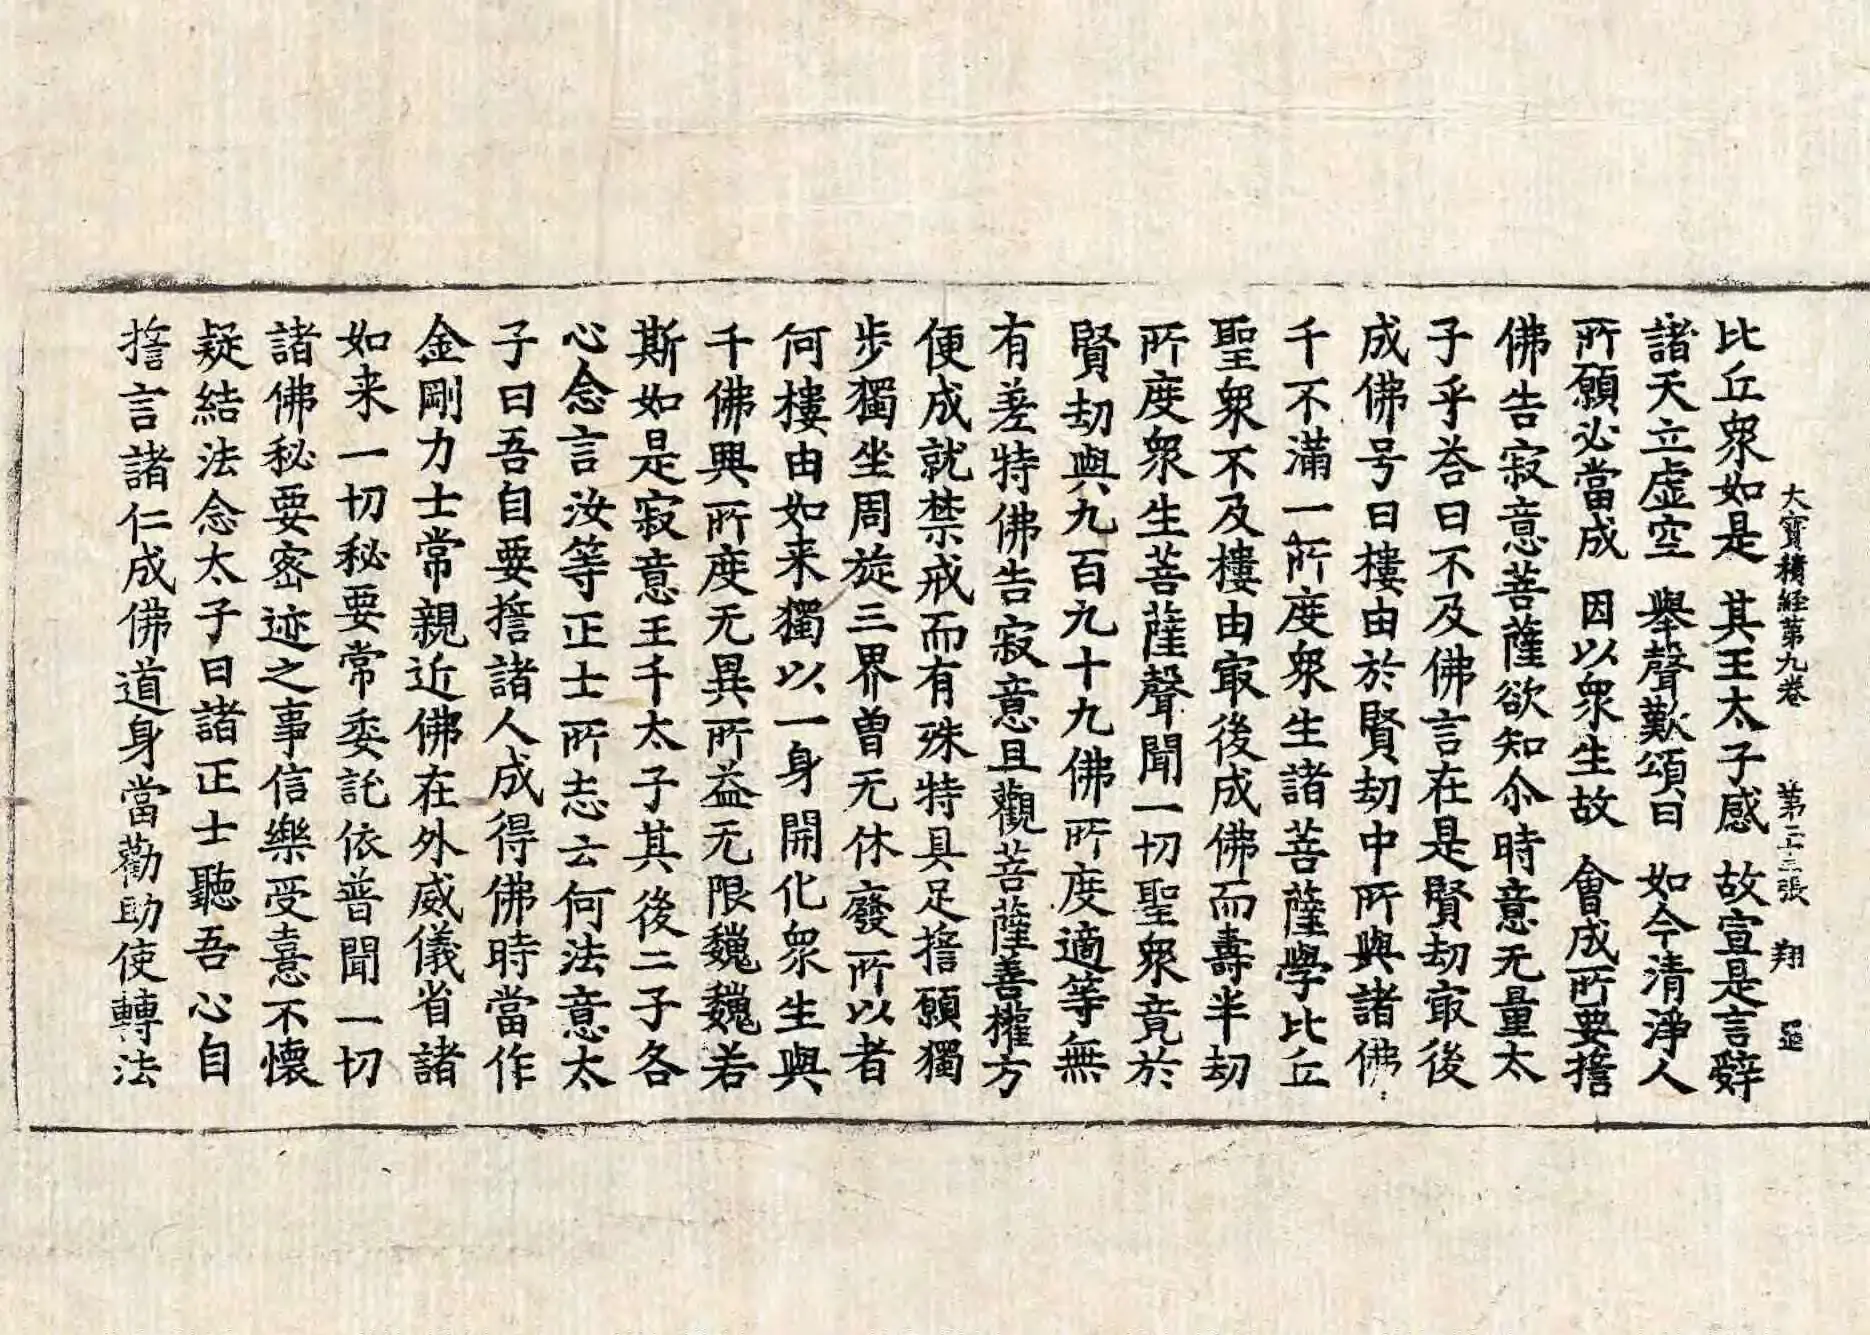 大寶積経第九卷 第二十三張 翔 㞷
比丘衆如是 其王太子感 故宣是言辤
諸天立虛空 舉聲歎頌曰 如今清淨人
所願必當成 因以衆生故 會成所要擔
佛告寂意菩薩欲知尒時意无量太
子乎荅曰不及佛言在是賢劫㝡後
成佛号曰樓由於賢劫中所興諸佛
千不滿一所度衆生諸菩薩學比丘
聖衆不及樓由㝡後成佛而壽半劫
所度衆生菩薩聲聞一切聖衆竟於
賢劫與九百九十九佛所度適等無
有差特佛告寂意且觀菩薩善權方
便成就禁戒而有殊特具足擔願獨
步獨坐周旋三界曽无休廢所以者
何樓由如来獨以一身開化衆生與
千佛興所度无異所益无限魏魏若
斯如是寂意王千太子其後二子各
心念言汝等正士所志云何法意太
子曰吾自要擔諸人成得佛時當作
金剛力士常親近佛在外威儀省諸
如来一切秘要常委託依普聞一切
諸佛秘要密迹之事信樂受憙不懷
疑結法念太子曰諸正士聽吾心自
擔言諸仁成佛道身當勸助使轉法